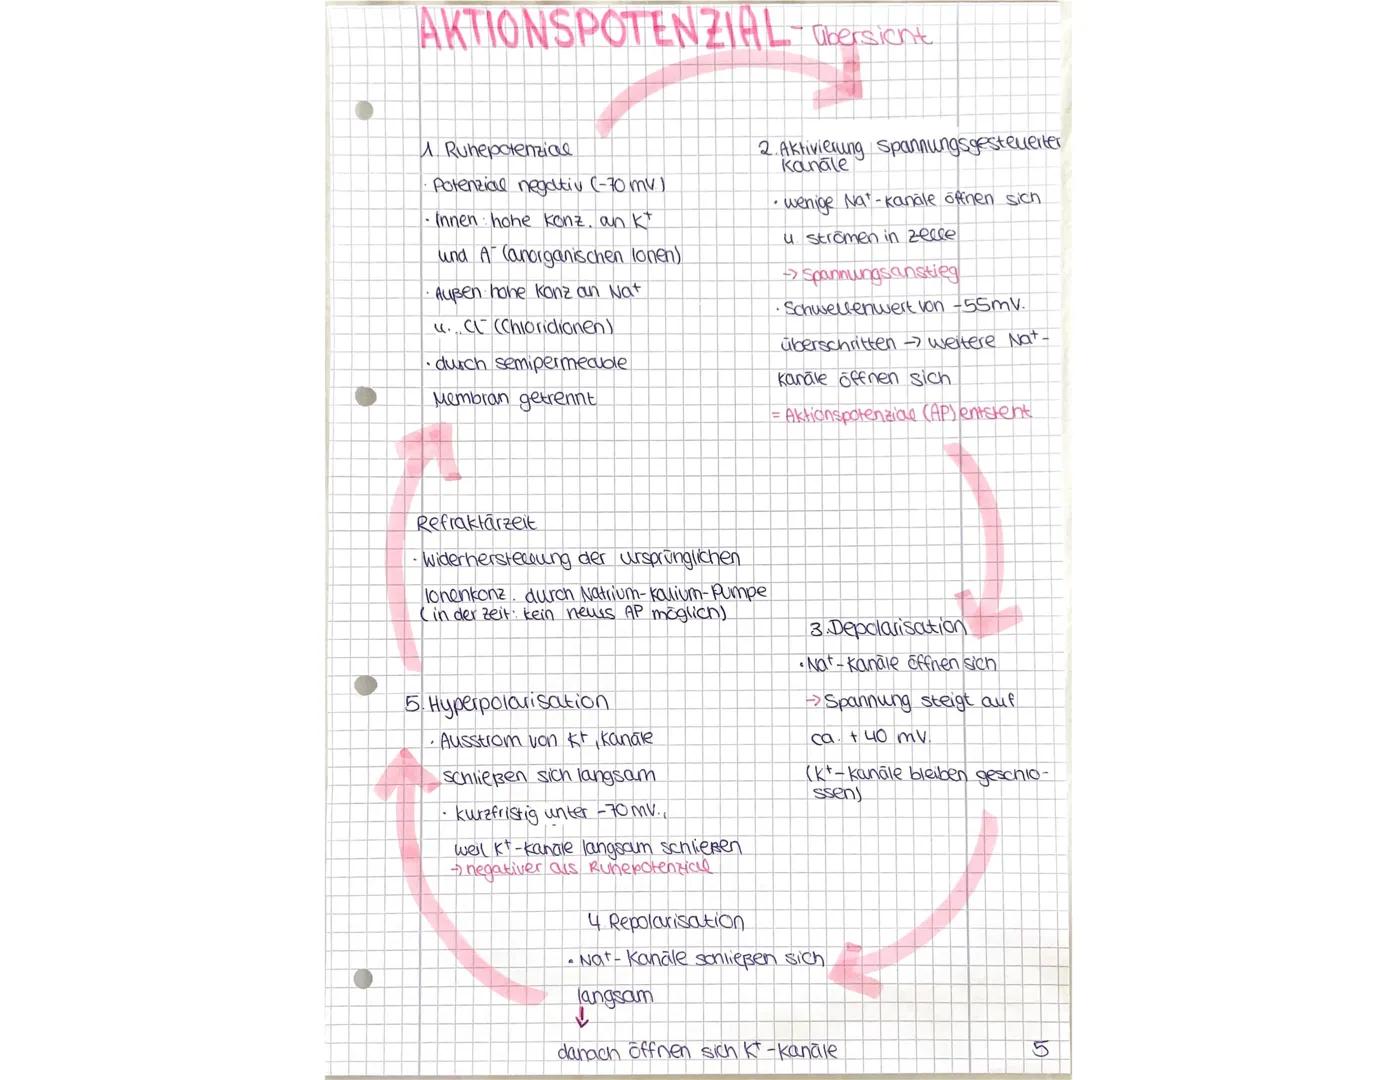 AKTIONSPOTENZIAL - Übersicht
1. Ruhepotenzial
· Potenzial negativ (-70 mV)
· Innen: hohe Konz. an K⁺
und A⁻ (anorganischen Ionen)
· Außen: hohe Konz an Na⁺
u... Cl⁻ (Chloridionen)
· durch semipermeable
Membran getrennt
2. Aktivierung spannungsgesteuerter
Kanäle
· wenige Na⁺-Kanäle öffnen sich
u strömen in Zelle
-> Spannungsanstieg
· Schwellenwert von -55mV.
überschritten -> weitere Na⁺-
Kanäle öffnen sich
= Aktionspotenzial (AP) entsteht
3. Depolarisation
· Na⁺-Kanäle öffnen sich
-> Spannung steigt auf
ca. +40 mV.
(K⁺-Kanäle bleiben geschlo-
ssen)
4 Repolarisation
· Na⁺-Kanäle schließen sich
langsam
↓
danach öffnen sich K⁺-Kanäle
5. Hyperpolarisation
· Ausstrom von K⁺, Kanäle
schließen sich langsam
· kurzfristig unter -70 mV.,
weil K⁺-Kanäle langsam schließen
-> negativer als Ruhepotenzial
Refraktärzeit
· Widerherstellung der ursprünglichen
Ionenkonz. durch Natrium-Kalium-Pumpe
(in der Zeit: kein neues AP möglich)
5